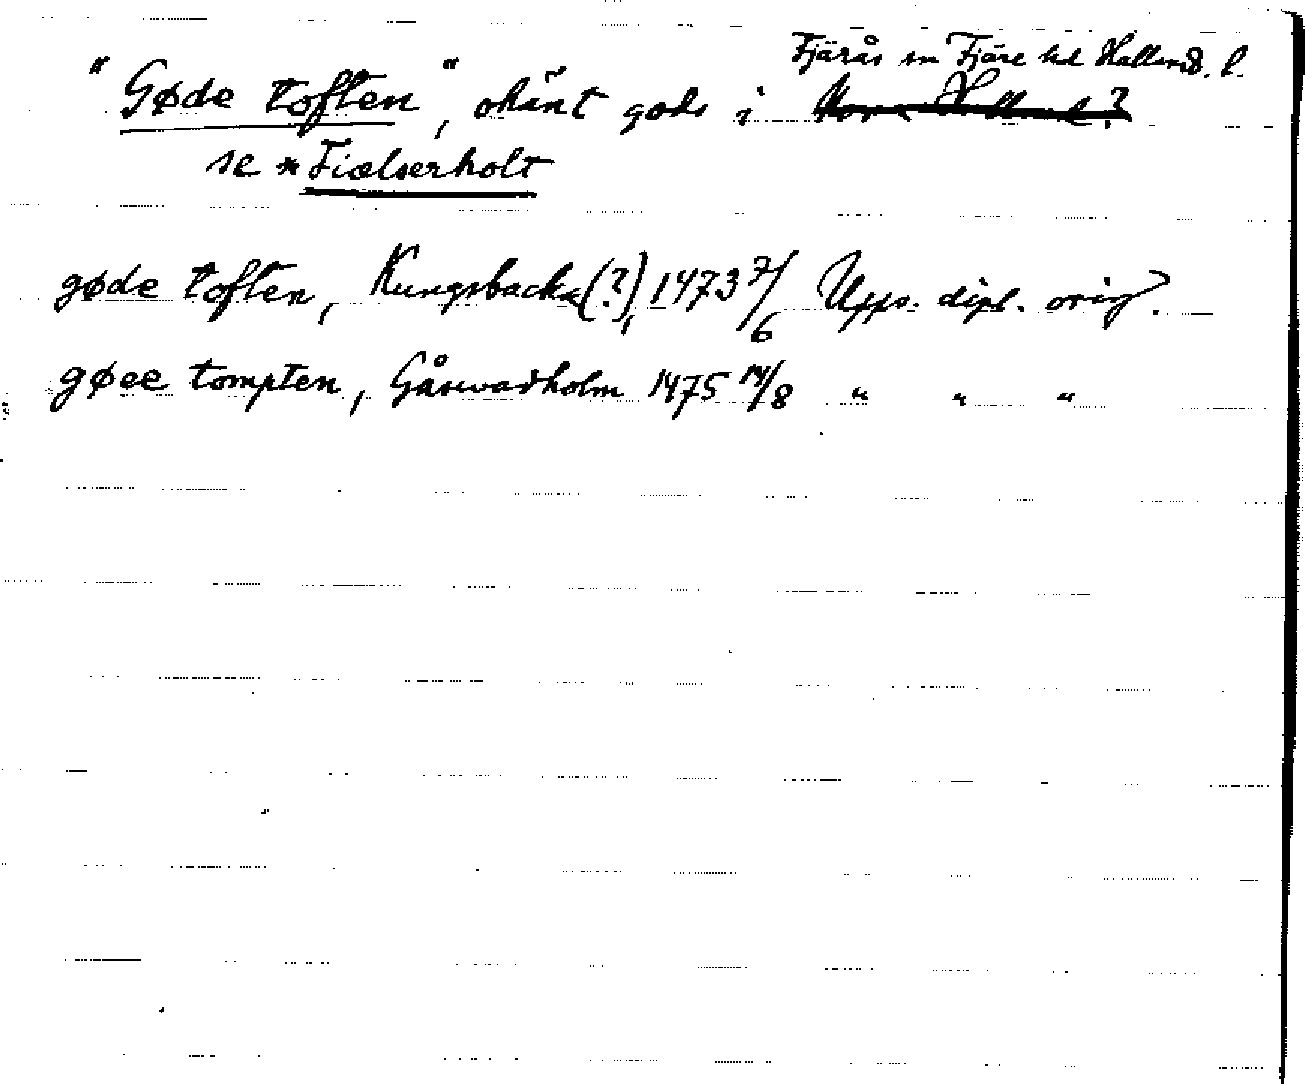 Fjärås sn Fjäre hd Hallands l.
"Gøde toften", okänt gods i Norra Halland?
se *Fiælserholt
gøde toften, Kungsbacka(?), 1473 7/6 Upps. dipl. orig.
gøee tompten, Gåsevadholm 1475 14/8 " " "